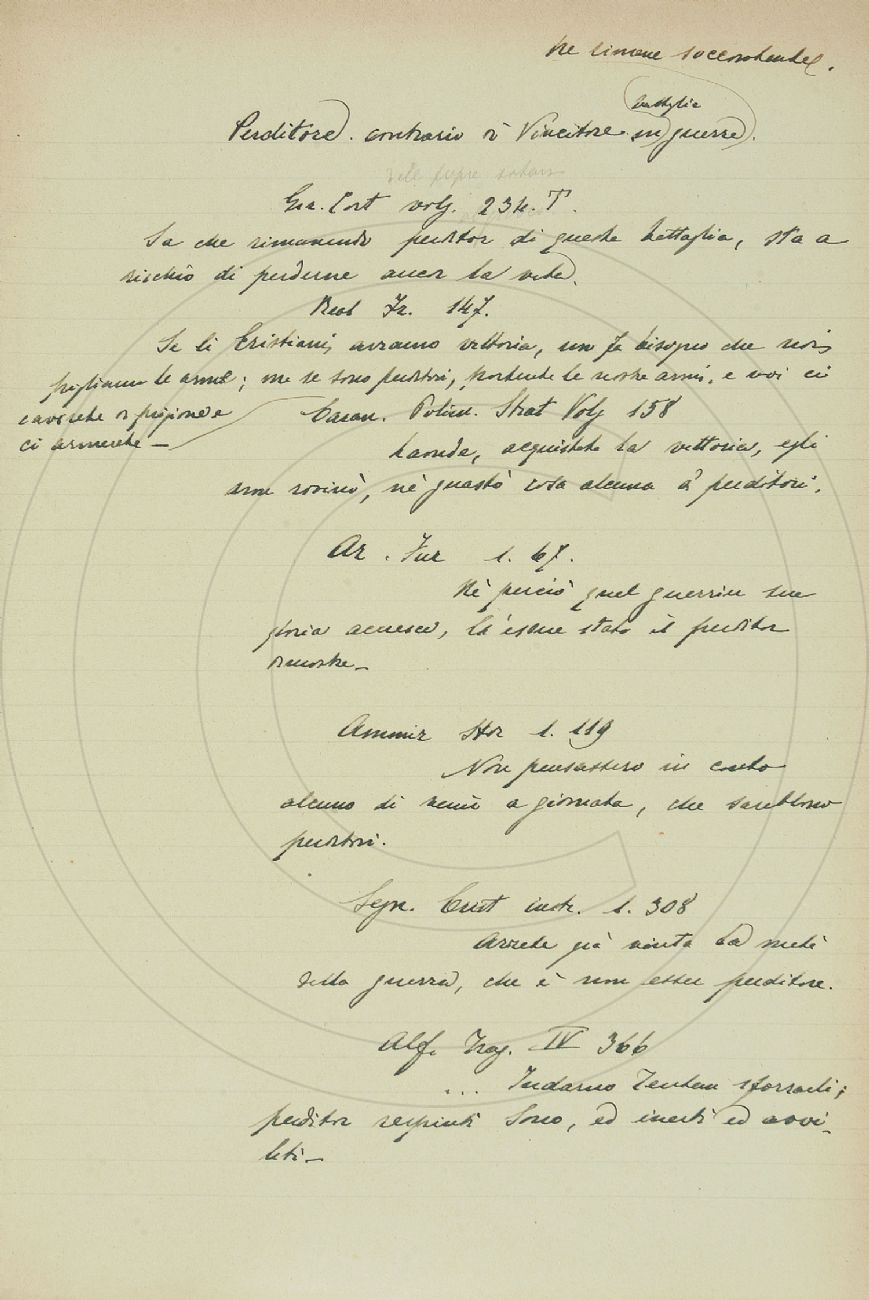 ne rimane soccombente.
battaglia
Perditore. contrario di Vincitore in guerra.
Gir. Cort volg. 234. T.
Sa che rimanendo perditor di questa battaglia, sta a
rischio di perderne ancor la vita.
147.
Se li Cristiani avranno vittoria, un fa bisogno che noi
pigliamo le arme; ma se sono perditori, portate le nostre armi, e voi ci
caverete di prigione e
ci armerete —
Caran. Polien. Strat Volg 158
Laonde, acquistata la vittoria, egli
non rovinò, nè guastò cosa alcuna a' perditori.
Ar. Fur 1. 67.
Nè perciò quel guerrier sua
gloria accresca, Ch'esser stato il perditor
dimostra —
Ammir Stor 1. 119
Non pensassero in conto
alcuno di venir a giornata, che sarebbono
perditori.
Segn. Crist instr. 1. 308
Avrete già vinta la metà
della guerra, che è non esser perditore.
Alf. Trag. IV 366
... Indarno Tentan sforzarli;
perditor respinti Sono, ed inerti ed avvi-
liti —